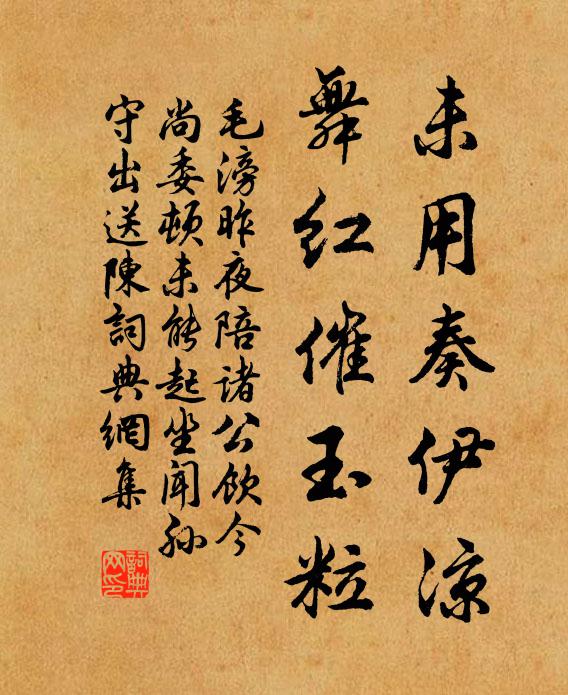 未用奏伊凉
舞红催玉粒
毛滂昨夜陪诸公饮今
尚委顿未能起坐闻孙
守出送陈词典网集
词典网印